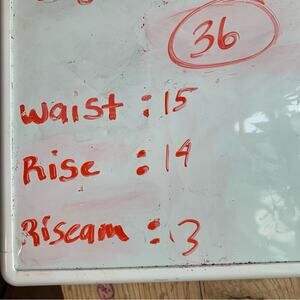 36
Waist : 15
Rise : 14
Riseam : 3